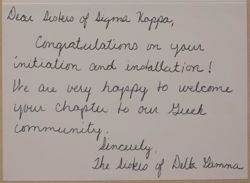 Dear Sisters of Sigma Kappa,
Congratulations on your
initiation and installation!
We are very happy to welcome
your chapter to our Greek
community.
Sincerely,
The Sisters of Delta Gamma